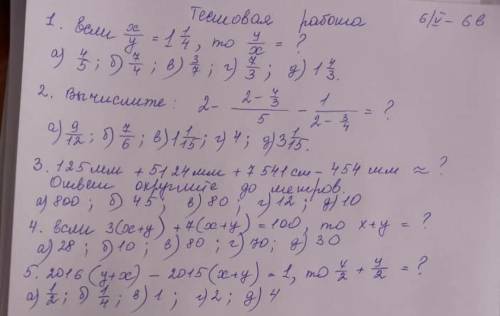 Тестовая работа 6/V - 6в
1. если x/y = 1 1/4, то y/x = ?
а) 4/5; б) 7/4; в) 3/7; г) 7/3; д) 1 4/3.
2. Вычислите: 2 - (2 - 4/3)/5 - 1/(2 - 3/4) = ?
а) 9/12; б) 7/6; в) 1 1/15; г) 4; д) 3 1/15.
3. 125 мм + 5124 мм + 7541 см - 454 мм ≈ ?
Ответ округлите до метров.
а) 800; б) 45; в) 80; г) 12; д) 10
4. если 3(x+y) + 7(x+y) = 100, то x+y = ?
а) 28; б) 10; в) 80; г) 70; д) 30
5. 2016(y+x) - 2015(x+y) = 1, то x/2 + y/2 = ?
а) 1/2; б) 1/4; в) 1; г) 2; д) 4